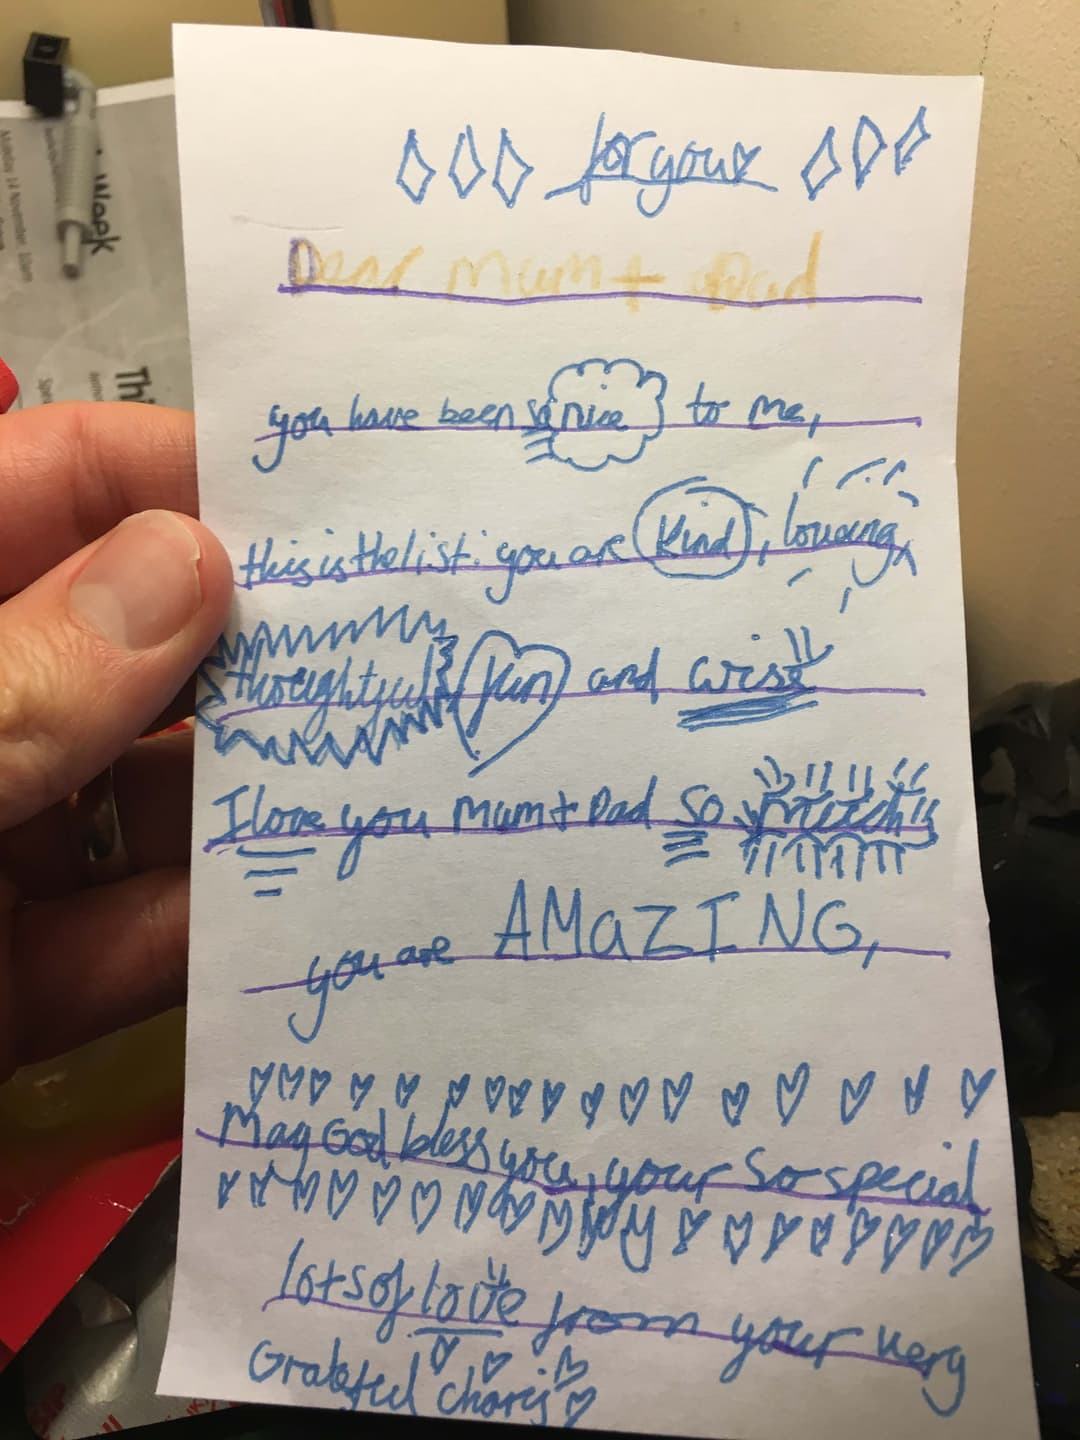 for you
Dear Mum + Dad
you have been so nice to me,
this is the list: you are kind, loveing,
thoughtful, fun and wise
I love you Mum + Dad so much
you are AMaZING,
May God bless you, your so special
lots of love from your very
Gratefed charis
Week
Monday 14 November
Thi